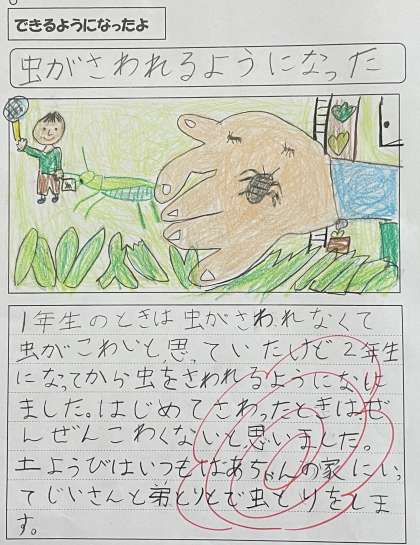 できるようになったよ
虫がさわれるようになった
1年生のときは虫がさわれなくて
虫がこわいと思っていたけど2年生
になってから虫をさわれるようになり
ました。はじめてさわったときはぜ
んぜんこわくないと思いました。
土ようびはいつもばあちゃんの家にいっ
てじいさんと弟とりとで虫とりをしま
す。